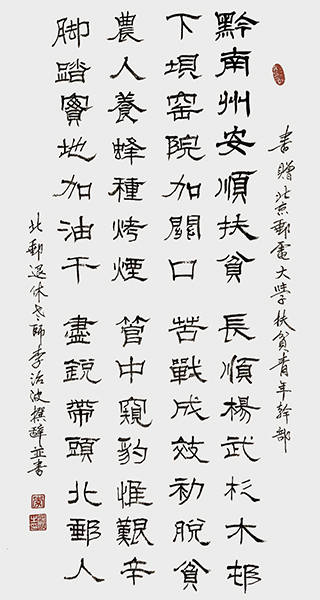 書贈北京郵電大學扶貧青年幹部
黔南州安順扶貧 長順楊武杉木邨
下垻窑院加關口 苦戰成效初脫貧
農人養蜂種烤煙 管中窺豹惟艱辛
脚踏實地加油干 盡銳帶頭北郵人
北郵退休老師李治波撰辭並書